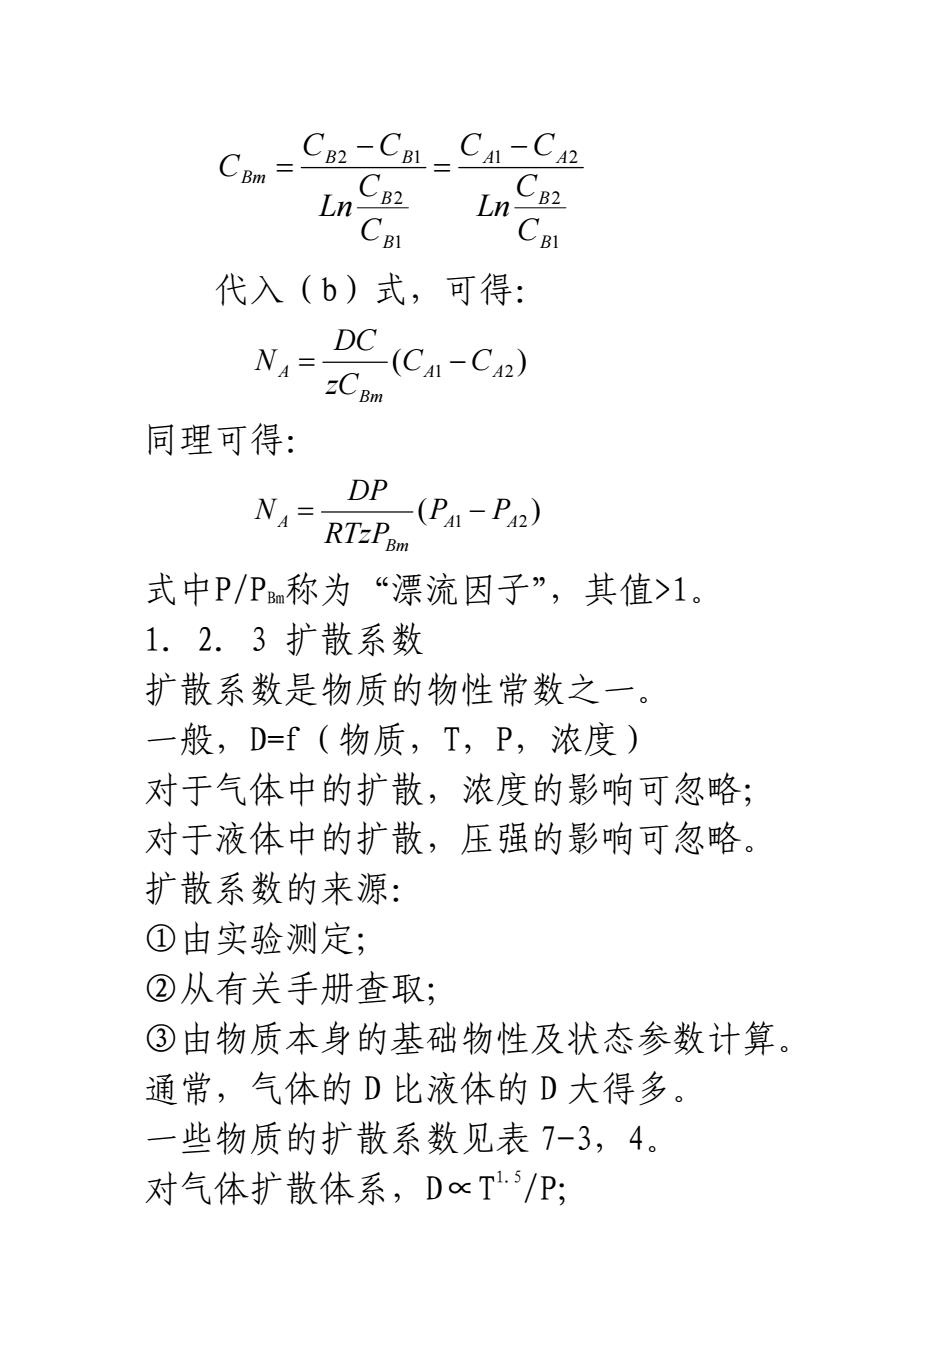 C_{Bm} = \frac{C_{B2} - C_{B1}}{Ln\frac{C_{B2}}{C_{B1}}} = \frac{C_{A1} - C_{A2}}{Ln\frac{C_{B2}}{C_{B1}}}
代入（b）式，可得：
N_A = \frac{DC}{zC_{Bm}}(C_{A1} - C_{A2})
同理可得：
N_A = \frac{DP}{RTzP_{Bm}}(P_{A1} - P_{A2})
式中P/P_{Bm}称为“漂流因子”，其值>1。
1．2．3 扩散系数
扩散系数是物质的物性常数之一。
一般，D=f（物质，T，P，浓度）
对于气体中的扩散，浓度的影响可忽略；
对于液体中的扩散，压强的影响可忽略。
扩散系数的来源：
①由实验测定；
②从有关手册查取；
③由物质本身的基础物性及状态参数计算。
通常，气体的 D 比液体的 D 大得多。
一些物质的扩散系数见表 7-3，4。
对气体扩散体系，D∝T^{1.5}/P；